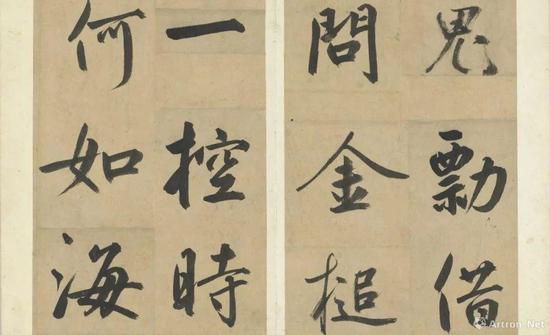 鬼勡借
問金槌
一控時
何如海
Artron.Net